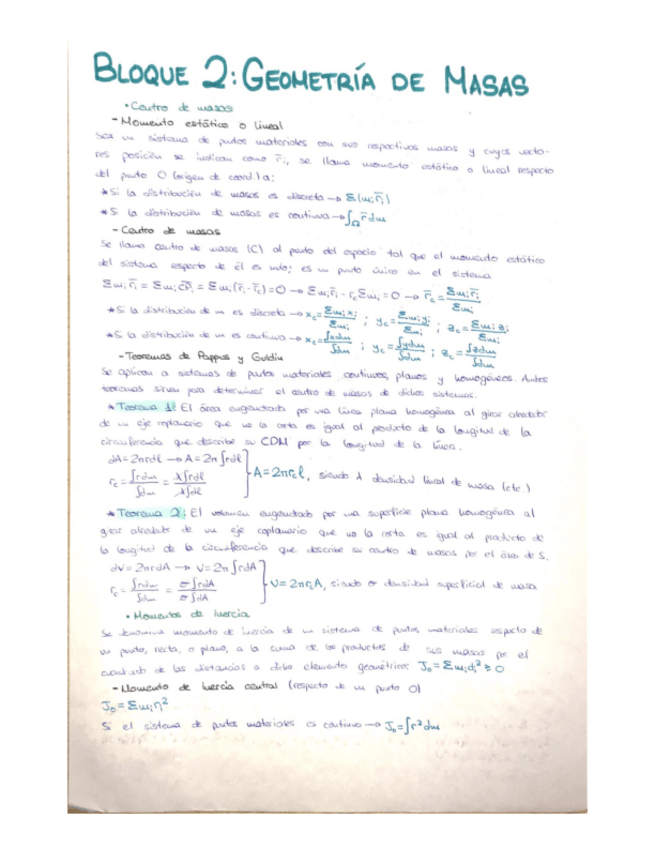 BLOQUE 2: GEOMETRÍA DE MASAS
• Centro de masas
- Momento estático o lineal
Sea un sistema de puntos materiales con sus respectivas masas y cuyos vecto-
res posición se indican como r̄ᵢ, se llama momento estático o lineal respecto
del punto O (origen de coord.) a:
* Si la distribución de masas es discreta → Σ(mᵢr̄ᵢ)
* Si la distribución de masas es continua → ∫Ω r̄dm
- Centro de masas
Se llama centro de masas (C) al punto del espacio tal que el momento estático
del sistema respecto de él es nulo; es un punto único en el sistema
Σmᵢr̄ᵢ = Σmᵢ CP̄ᵢ = Σmᵢ(r̄ᵢ-r̄c)=0 → Σmᵢr̄ᵢ - r̄cΣmᵢ = 0 → r̄c = Σmᵢr̄ᵢ/Σmᵢ
* Si la distribución de m es discreta → xc = Σmᵢxᵢ/Σmᵢ ; yc = Σmᵢyᵢ/Σmᵢ ; zc = Σmᵢzᵢ/Σmᵢ
* Si la distribución de m es continua → xc = ∫xdm/∫dm ; yc = ∫ydm/∫dm ; zc = ∫zdm/∫dm
- Teoremas de Pappus y Guldin
Se aplican a sistemas de puntos materiales continuos, planos y homogéneos. Ambos
teoremas sirven para determinar el centro de masas de dichos sistemas.
* Teorema 1: El área engendrada por una línea plana homogénea al girar alrededor
de un eje coplanario que no la corta es igual al producto de la longitud de la
circunferencia que describe su CDM por la longitud de la línea.
dA = 2πrdl → A = 2π∫rdl
rc = ∫rdm/∫dm = λ∫rdl/λ∫dl } A = 2πrcl, siendo λ densidad lineal de masa (cte.)
* Teorema 2: El volumen engendrado por una superficie plana homogénea al
girar alrededor de un eje coplanario que no la corta es igual al producto de
la longitud de la circunferencia que describe su centro de masas por el área de S.
dV = 2πrdA → V = 2π∫rdA
rc = ∫rdm/∫dm = σ∫rdA/σ∫dA } V = 2πrcA, siendo σ densidad superficial de masa
• Momentos de inercia
Se denomina momento de inercia de un sistema de puntos materiales respecto de
un punto, recta, o plano, a la suma de los productos de sus masas por el
cuadrado de las distancias a dicho elemento geométrico: J₀ = Σmᵢdᵢ² ≥ 0
- Momento de inercia central (respecto de un punto O)
J₀ = Σmᵢrᵢ²
Si el sistema de puntos materiales es continuo → J₀ = ∫r²dm